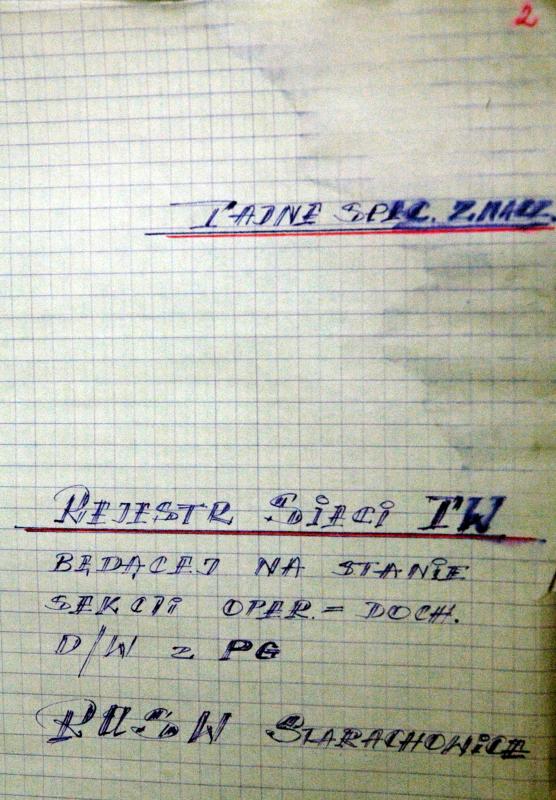 2
TAJNE SPEC. ZNACZ.
REJESTR SIECI TW
BĘDĄCEJ NA STANIE
SEKCJI OPER. - DOCH.
D/W z PG
RUSW STARACHOWICE